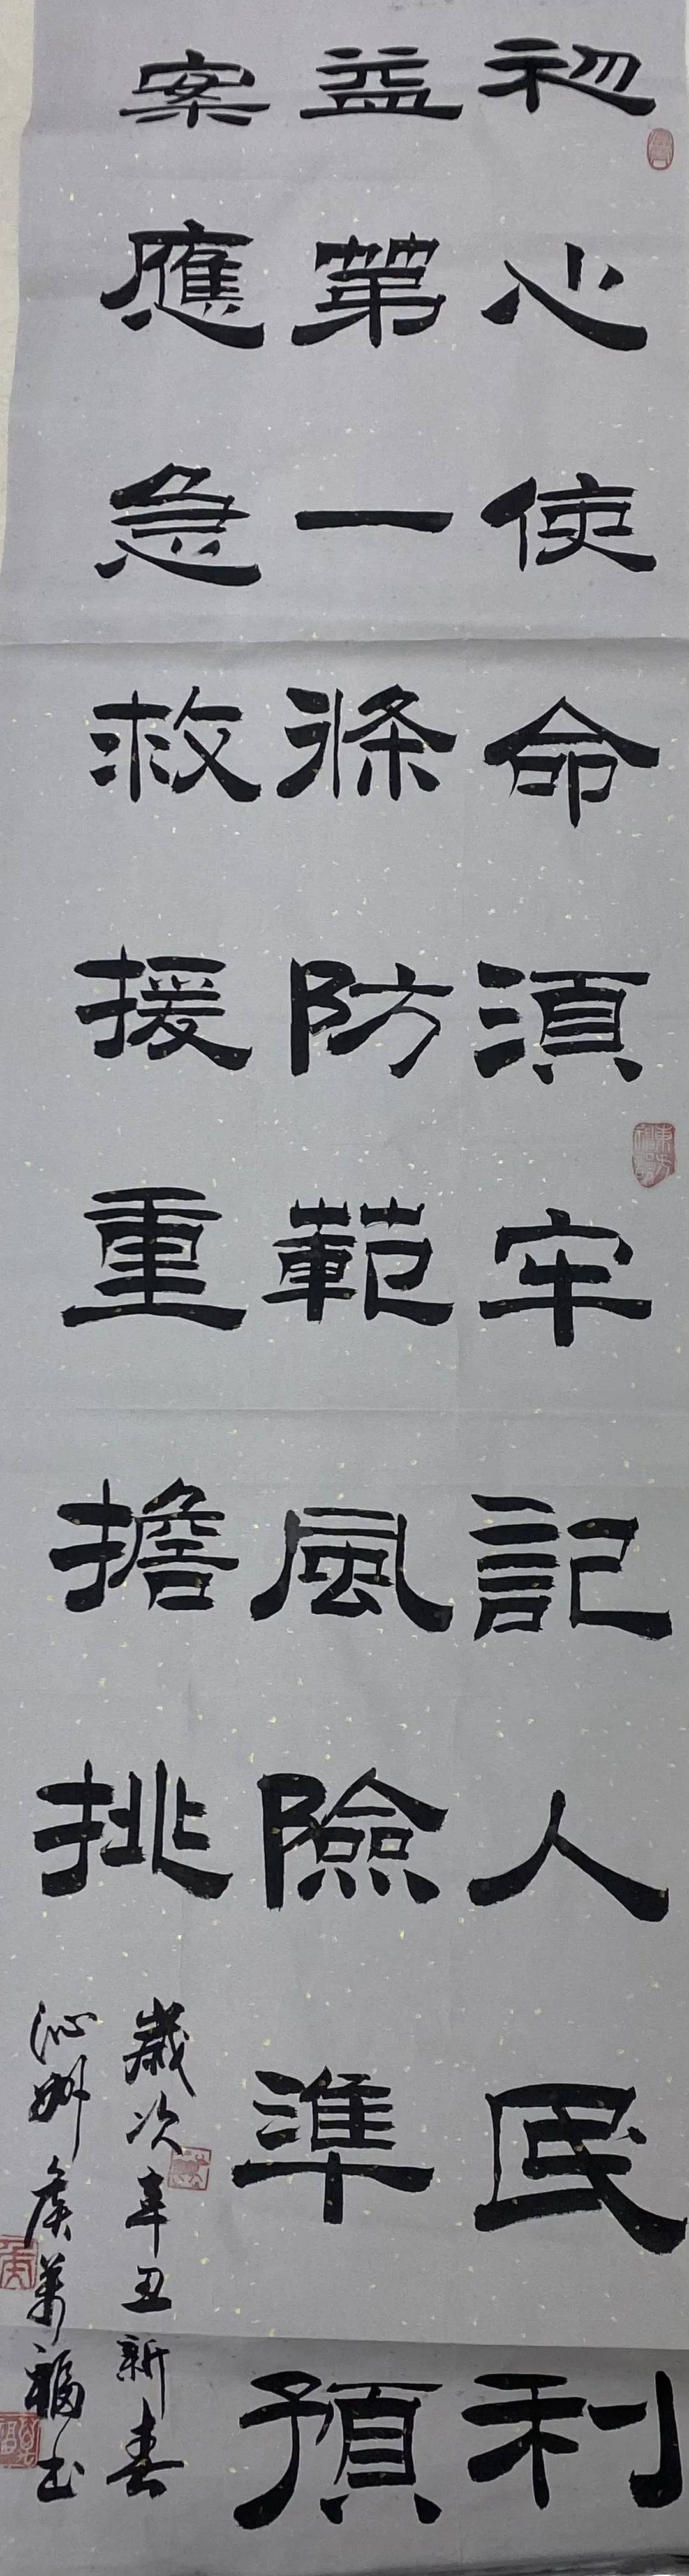 初心使命須牢記人民利
益第一條防範風險準預
案應急救援重擔挑
歲次辛丑新春
沁州侯萬福书